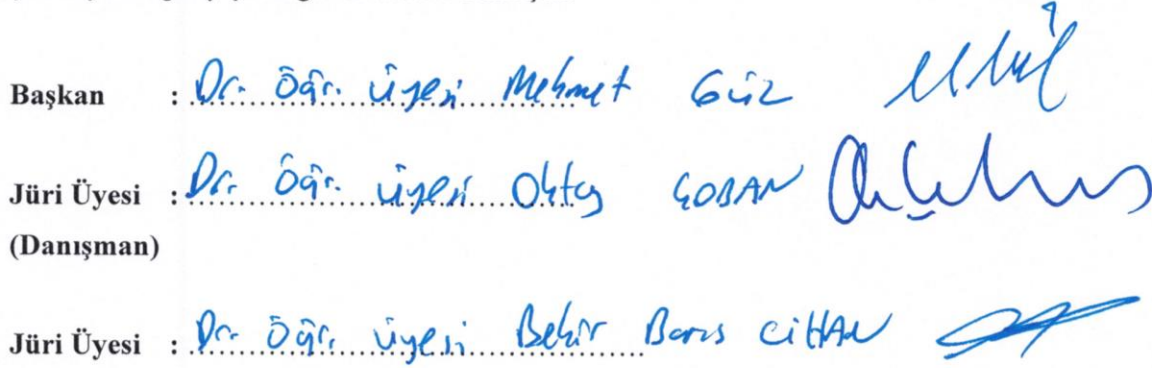 Başkan : Dr. Öğr. Üyesi Mehmet GÜZ
Jüri Üyesi : Dr. Öğr. Üyesi Oktay ÇOBAN
(Danışman)
Jüri Üyesi : Dr. Öğr. Üyesi Bekir Barış CİHAN